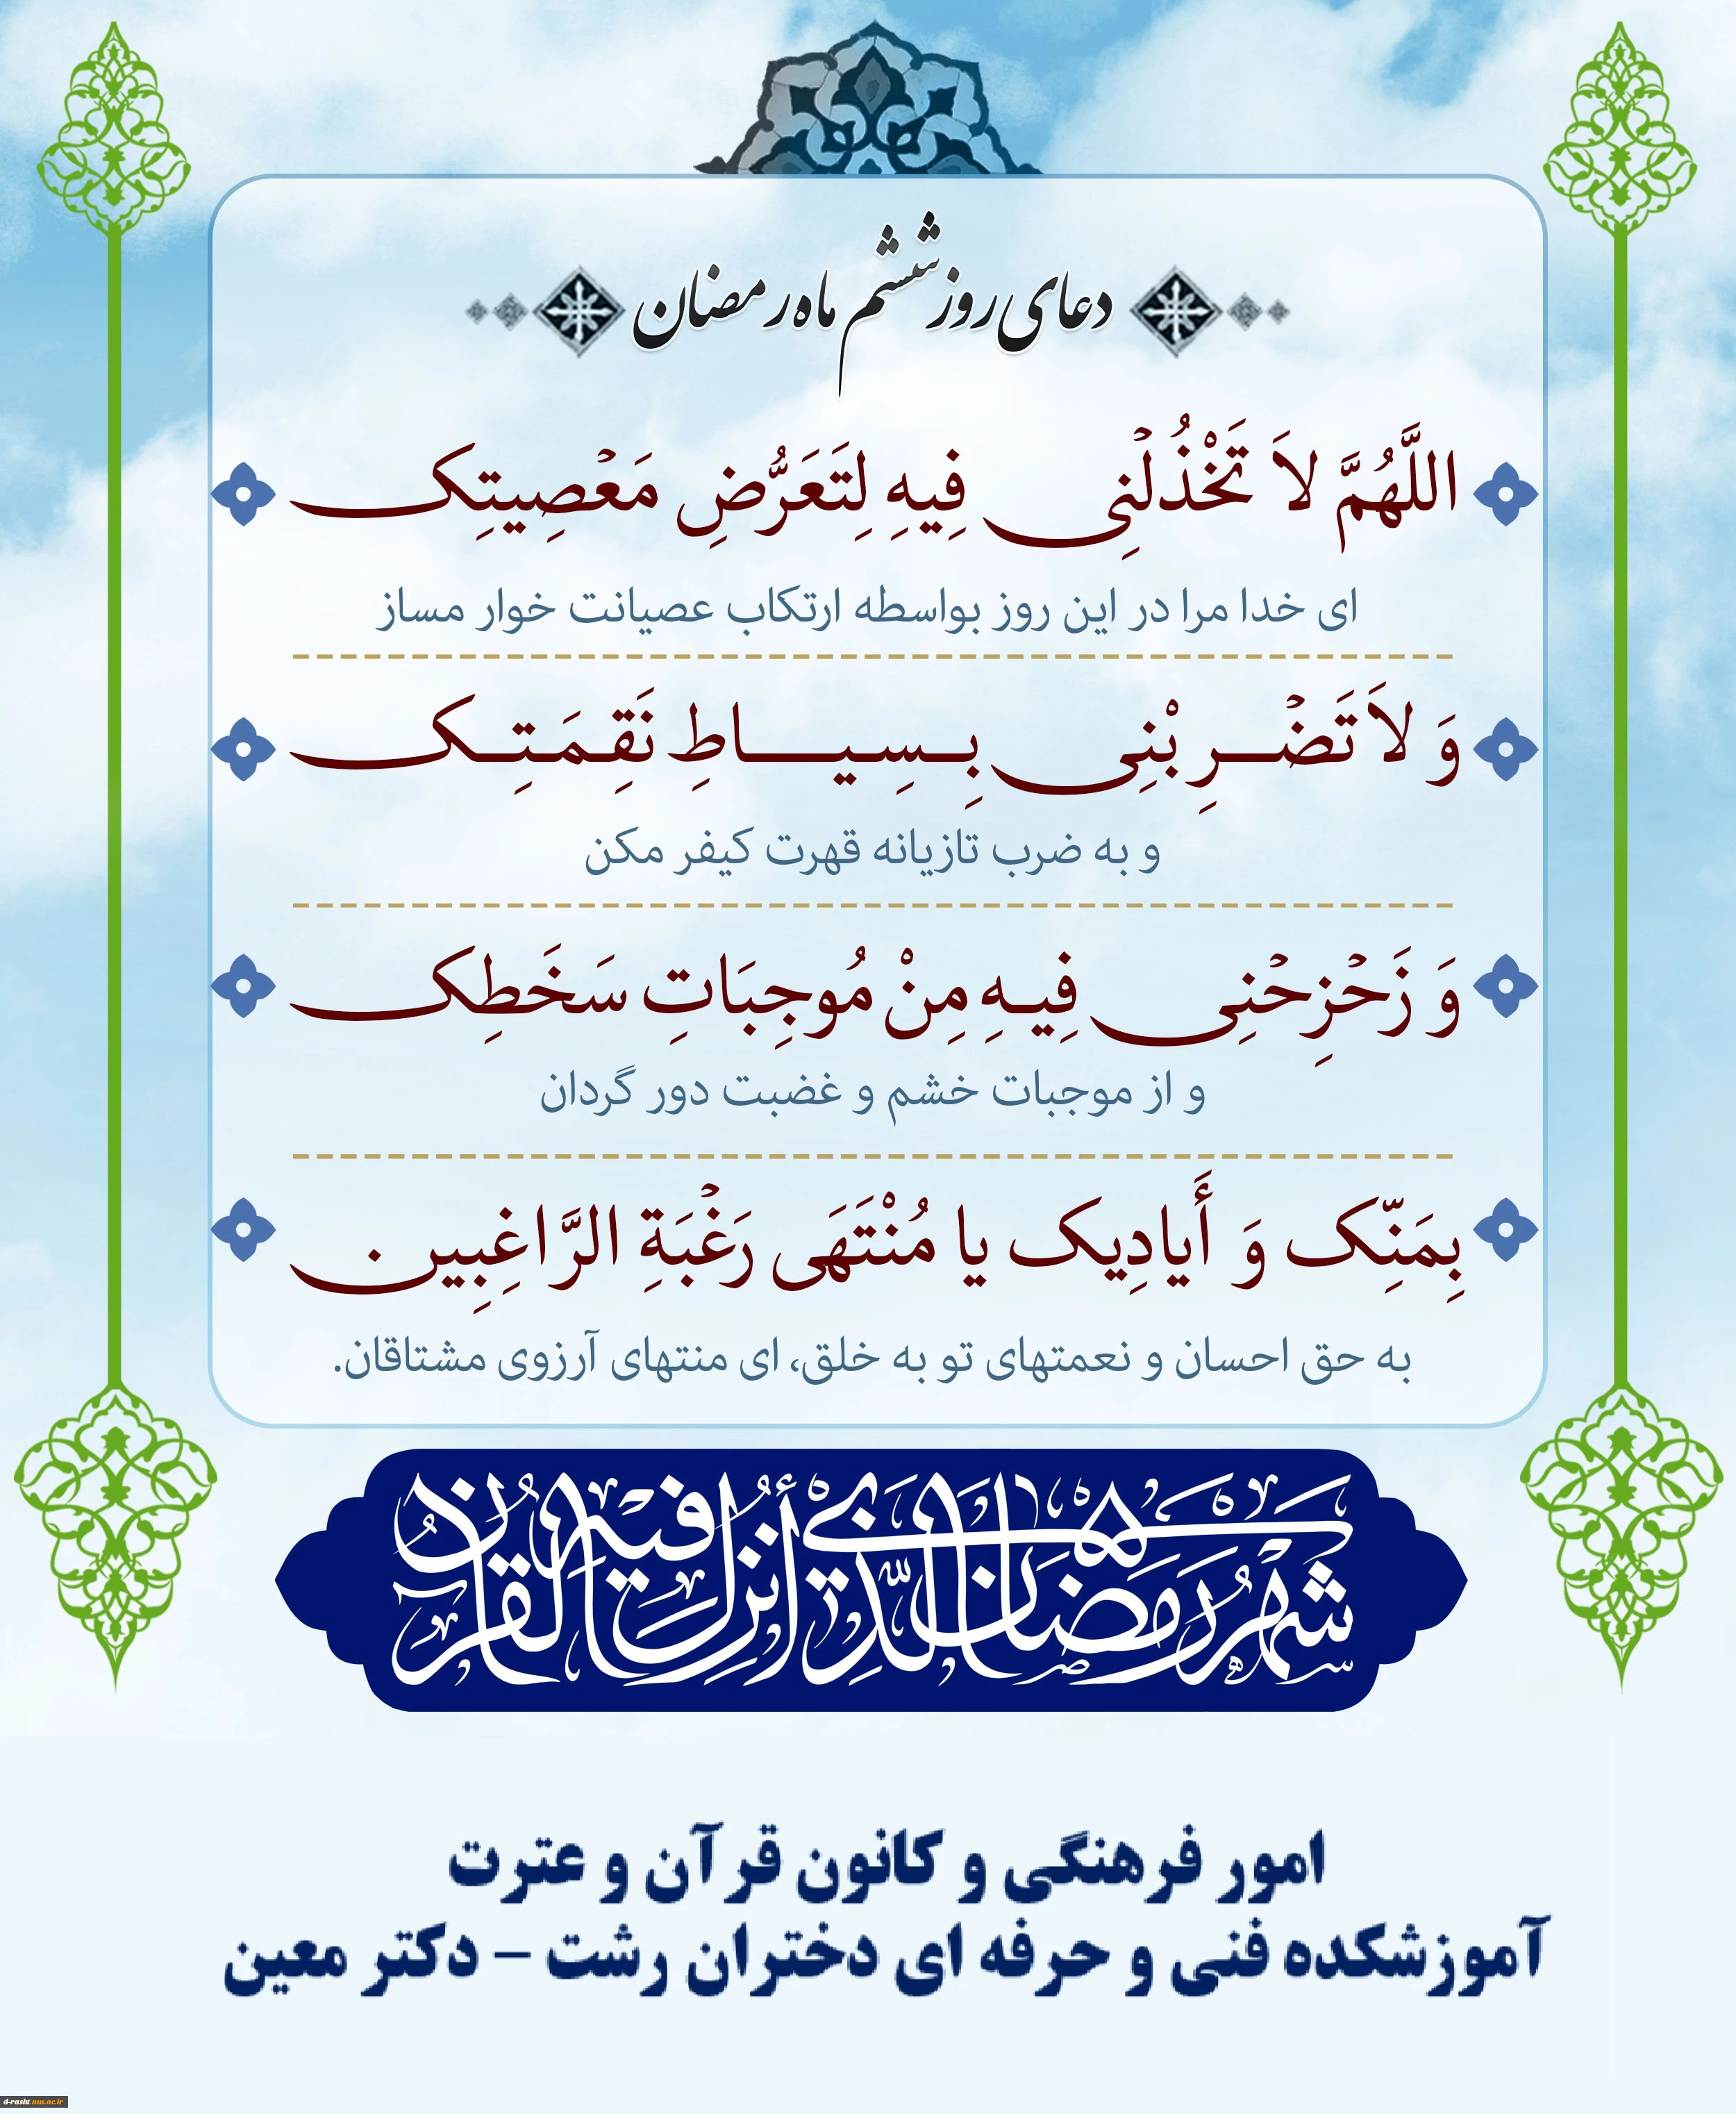 دعای روز ششم ماه رمضان
اللَّهُمَّ لاَ تَخْذُلْنِی فِیهِ لِتَعَرُّضِ مَعْصِیتِک
ای خدا مرا در این روز بواسطه ارتکاب عصیانت خوار مساز
وَ لاَ تَضْرِبْنِی بِسِیاطِ نَقِمَتِک
و به ضرب تازیانه قهرت کیفر مکن
وَ زَحْزِحْنِی فِیهِ مِنْ مُوجِبَاتِ سَخَطِک
و از موجبات خشم و غضبت دور گردان
بِمَنِّک وَ أَیادِیک یا مُنْتَهَی رَغْبَةِ الرَّاغِبِین .
به حق احسان و نعمتهای تو به خلق، ای منتهای آرزوی مشتاقان.
شهر رمضان الذی أنزل فیه القرآن
امور فرهنگی و کانون قرآن و عترت
آموزشکده فنی و حرفه ای دختران رشت – دکتر معین
d-rasht.nus.ac.ir